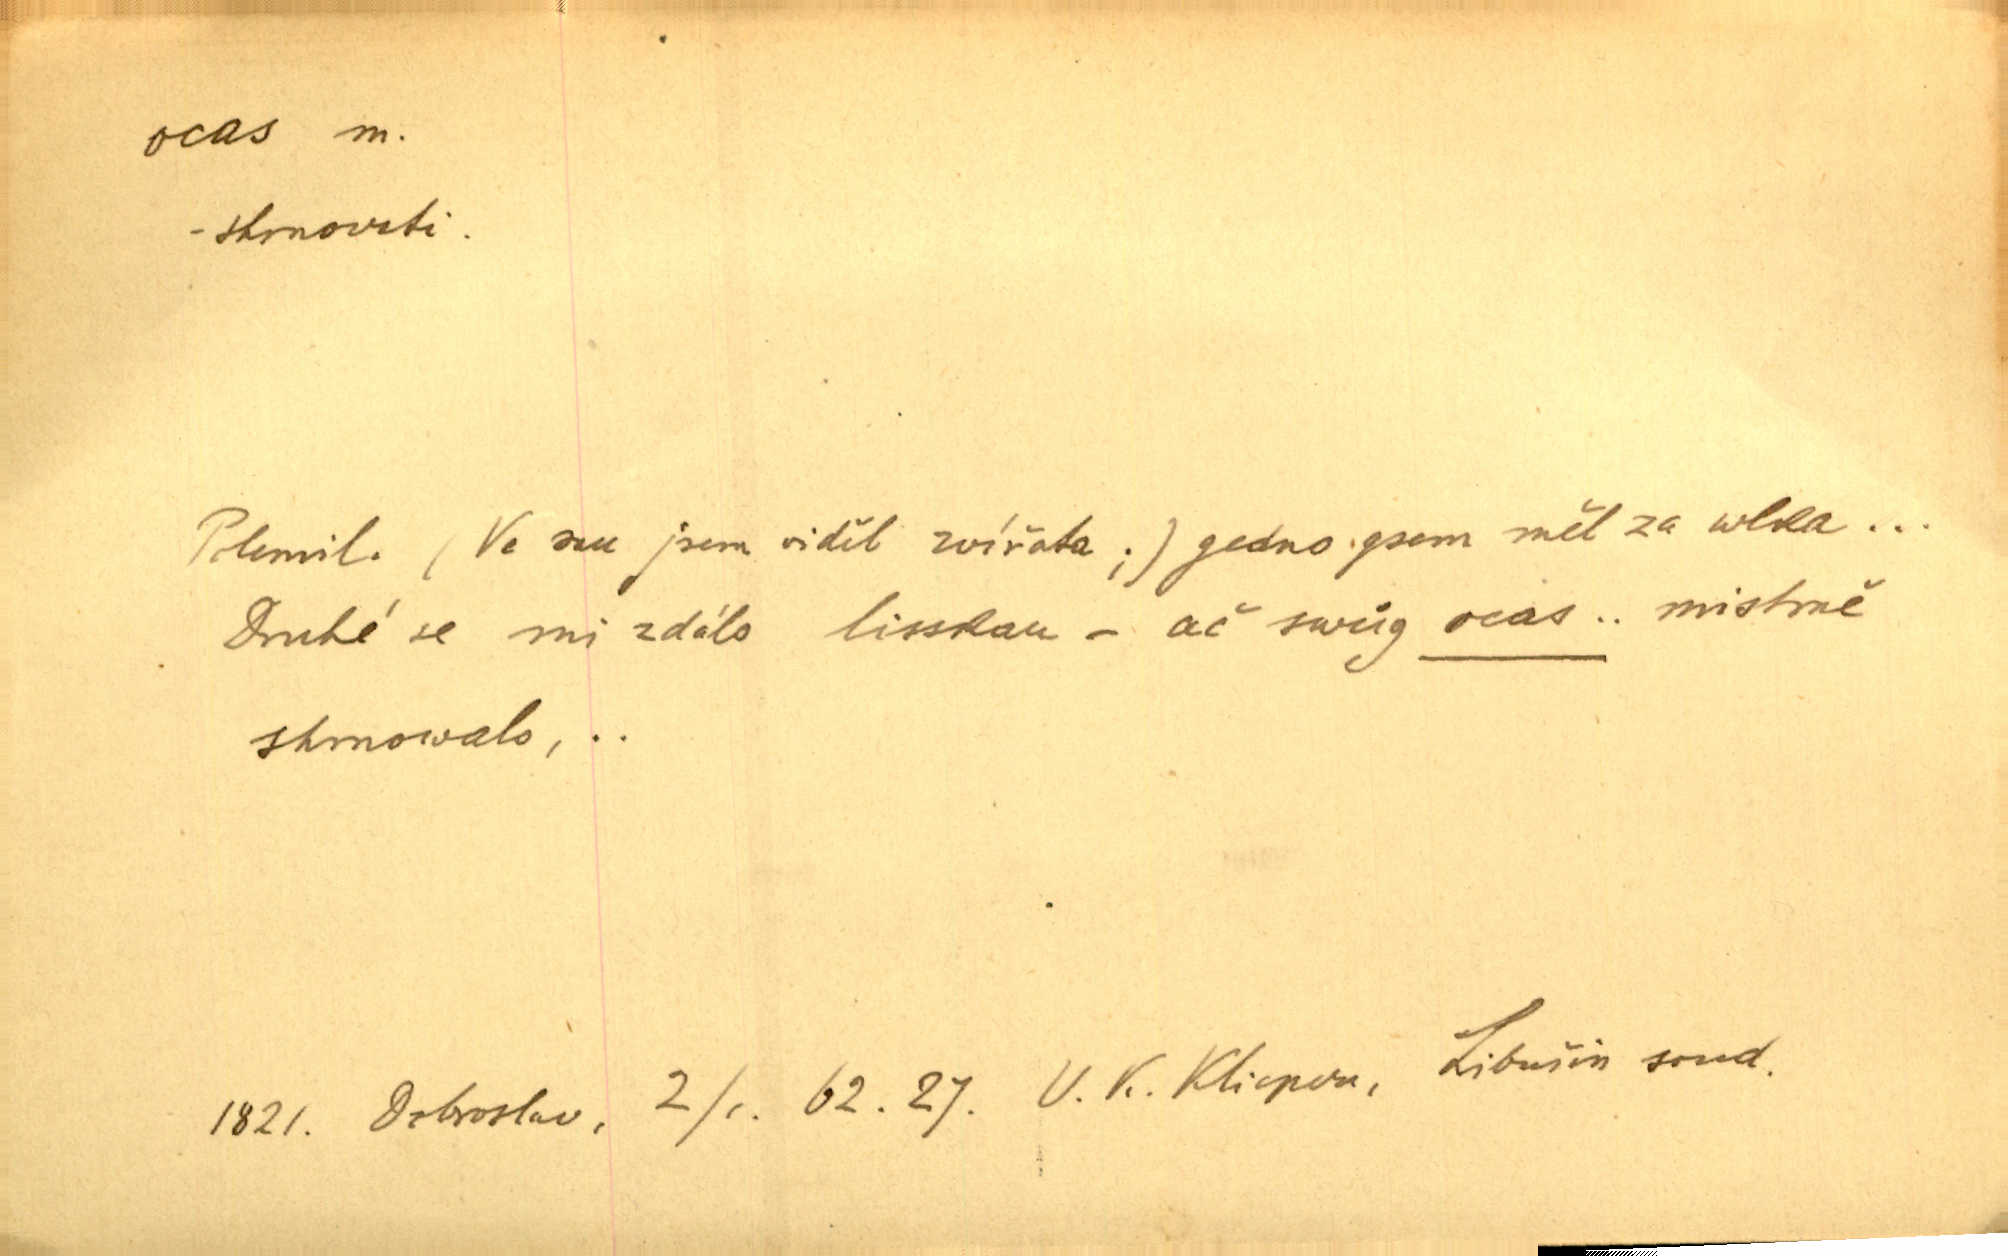 ocas m.
- shrnovati.
Polemil. (Ve snu jsem viděl zvířata;) gedno gsem měl za wlka ...
Druhé se mi zdálo lisskau - ač swůg ocas .. mistrně
shrnowalo, ..
1821. Dobroslav, 2/1. 62. 27. V. K. Klicpera, Libušin soud.